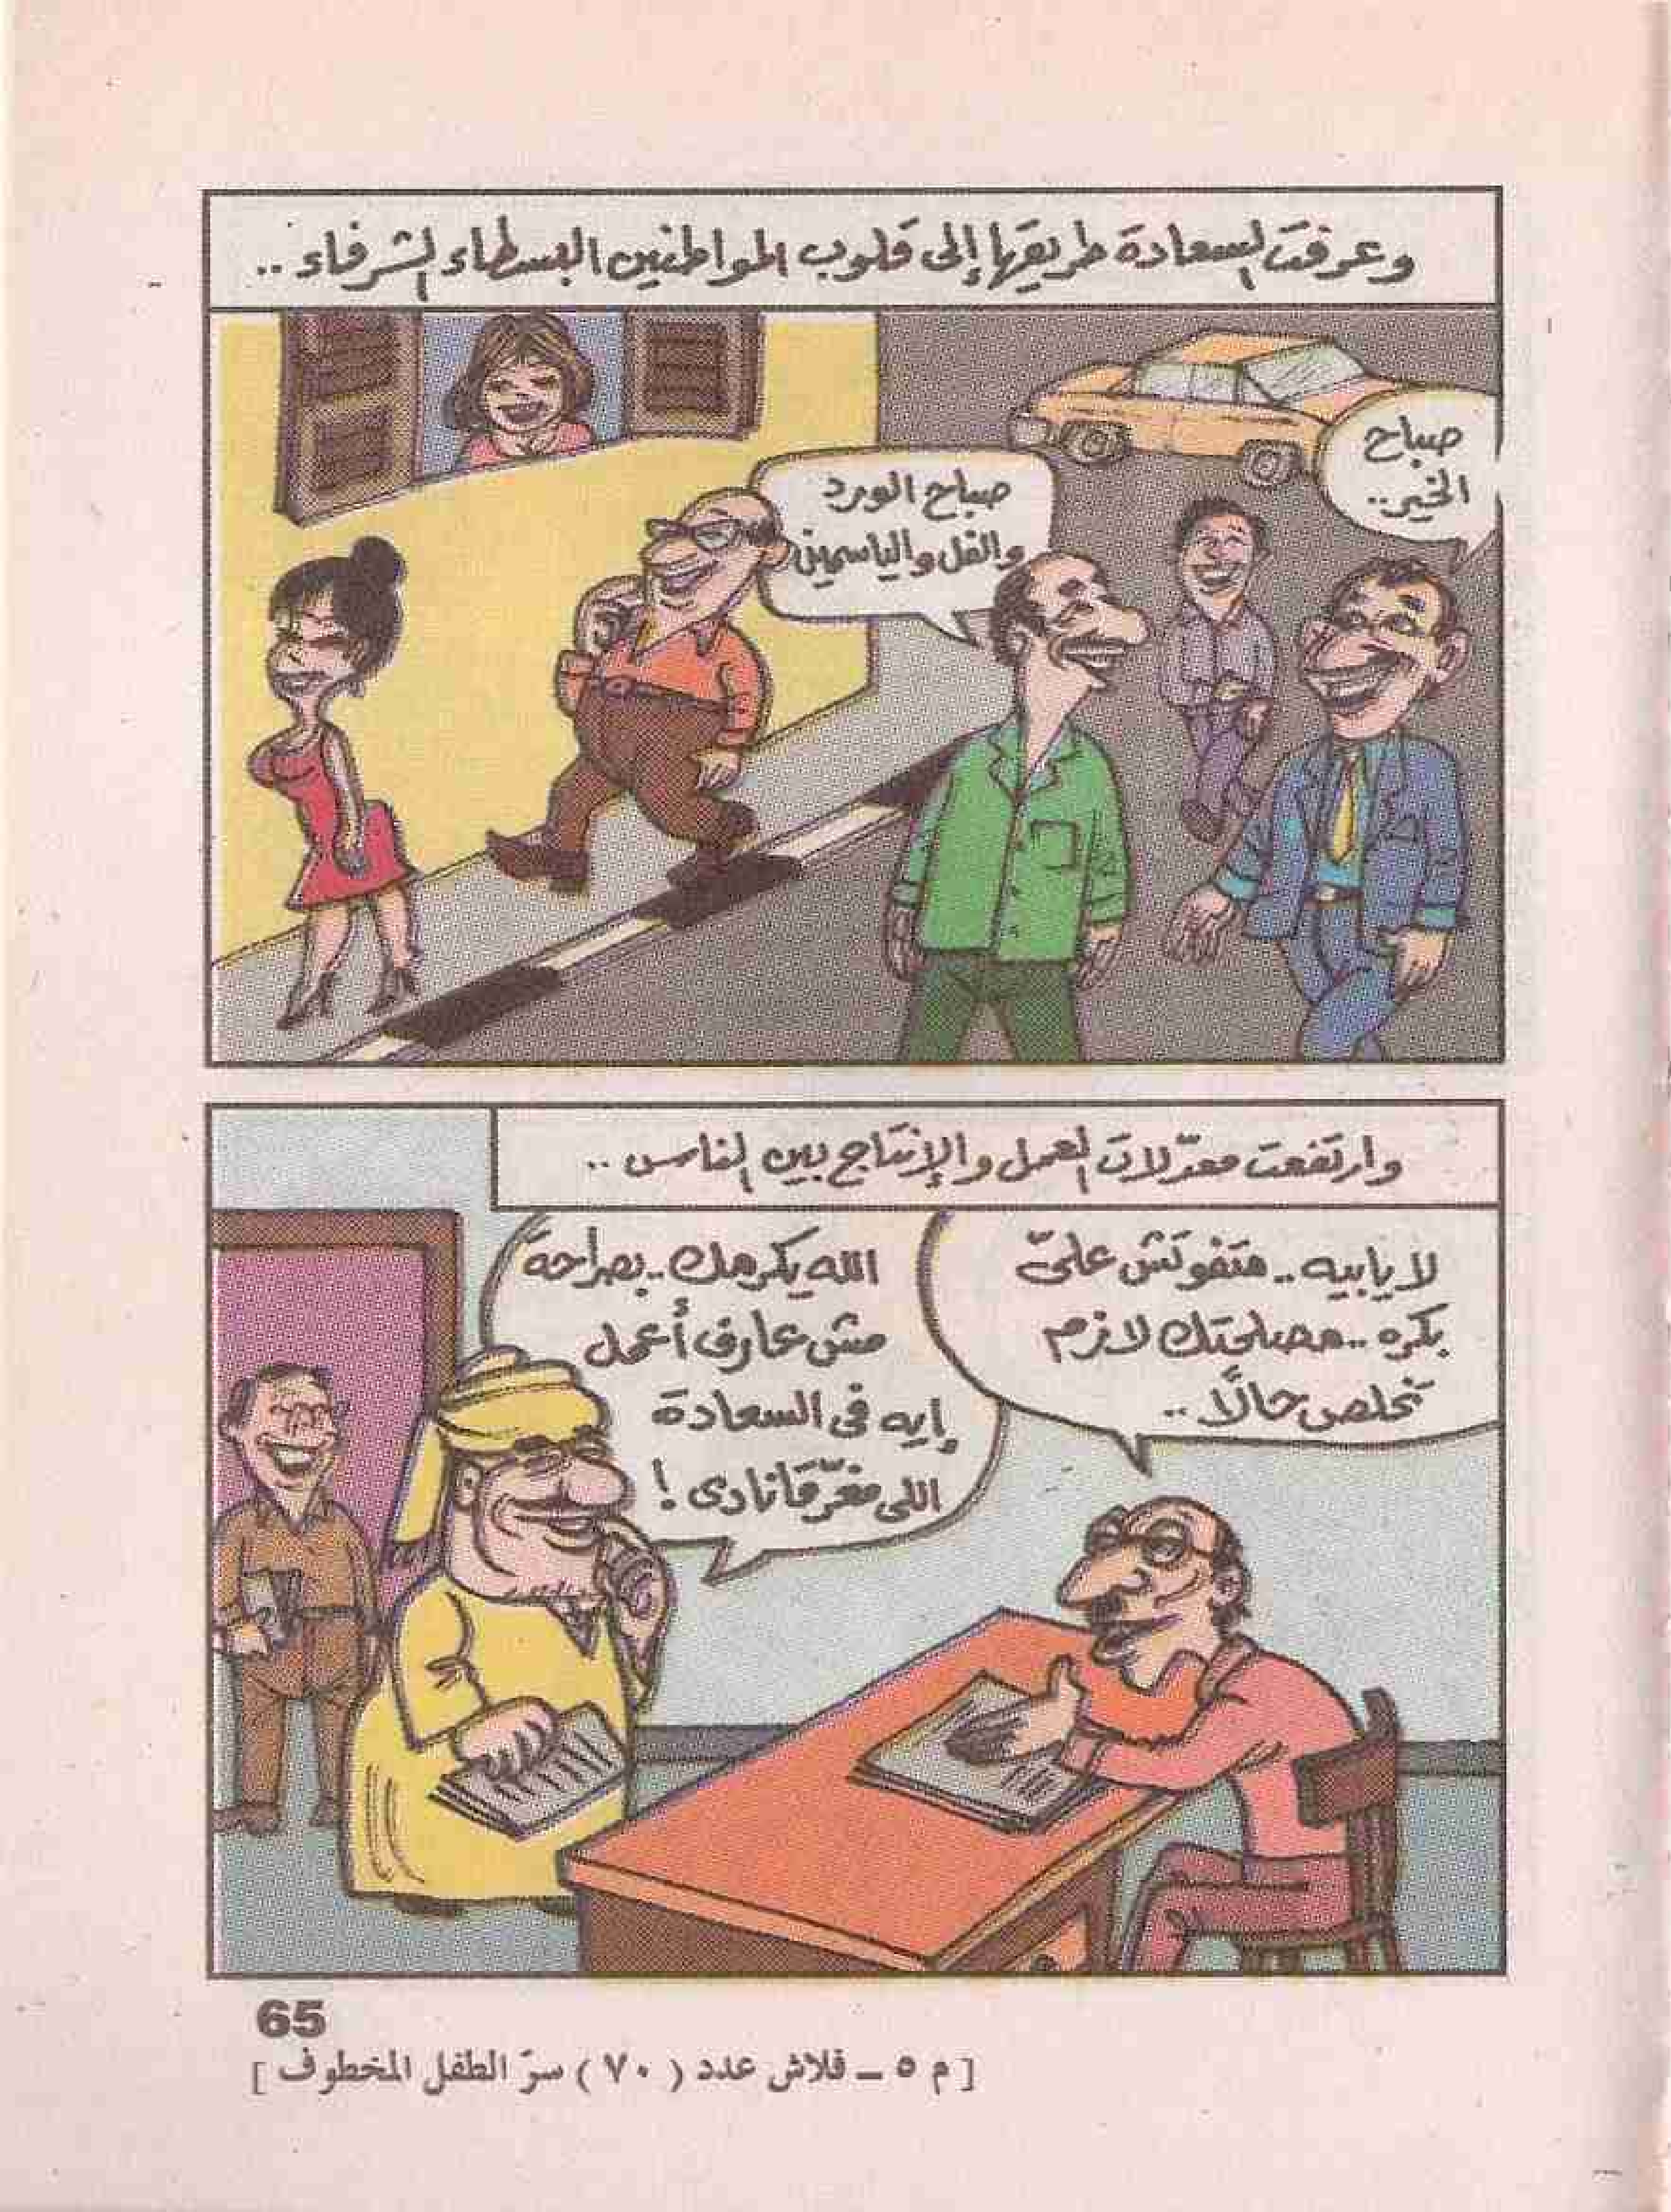 وعرفت السعادة طريقها إلى قلوب المواطنين البسطاء الشرفاء ..
صباح
الخير..
صباح الورد
والفل والياسمين
وارتفعت معدّلات العمل والإنتاج بين الناس ..
لا يا بيه .. متفوتش علىّ
بكره .. مصلحتك لازم
تخلص حالًا ..
الله يكرمك .. بصراحة
مش عارف أعمل
إيه فى السعادة
اللى مغرّقانا دى !
65
[ م ٥ ــ فلاش عدد ( ٧٠ ) سرّ الطفل المخطوف ]